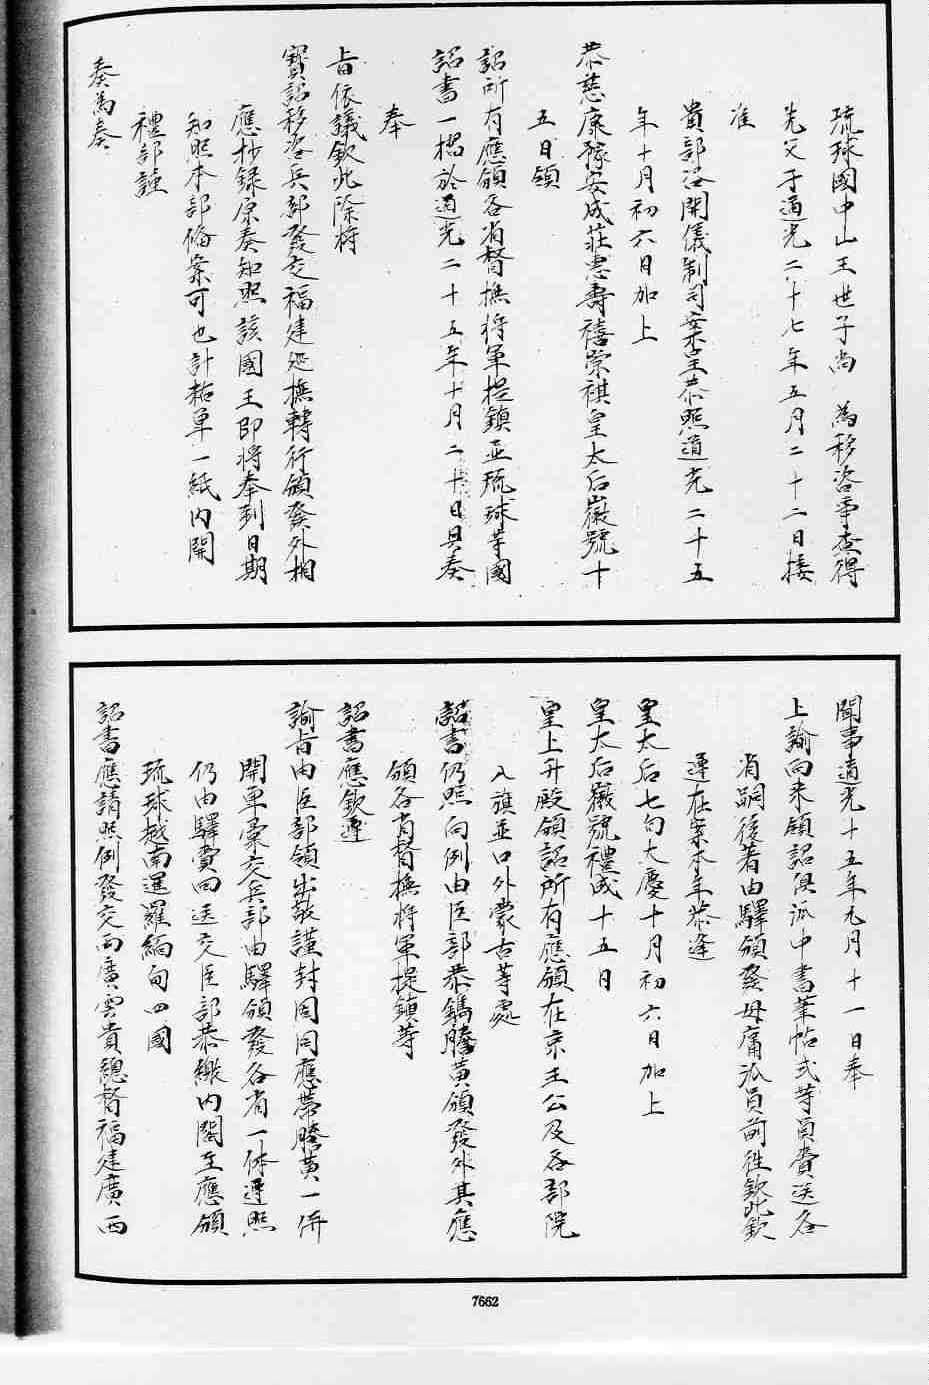 琉球國中山王世子尚 為移咨事查得
先父于道光二十七年五月二十二日接
准
貴部咨開儀制司案呈恭照道光二十五
年十月初六日加上
恭慈康豫安成莊惠壽禧崇祺皇太后徽號十
五日頒
詔所有應頒各省督撫將軍提鎮並琉球等國
詔書一摺於道光二十五年十月二十日具奏
奉
旨依議欽此除將
寶詔移咨兵部發交福建巡撫轉行頒發外相
應抄錄原奏知照該國王即將奉到日期
知照本部備案可也計粘單一紙內開
禮部謹
奏為奏
聞事道光十五年九月十一日奉
上諭向來頒詔俱派中書筆帖式等員賫送各
省嗣後著由驛頒發毋庸派員前往欽此欽
遵在案本年恭逢
皇太后七旬大慶十月初六日加上
皇太后徽號禮成十五日
皇上升殿頒詔所有應頒在京王公及各部院
八旗並口外蒙古等處
詔書仍照向例由臣部恭鐫騰黃頒發外其應
頒各省督撫將軍提鎮等
詔書應欽遵
諭旨由臣部領出敬謹封固同應帶騰黃一併
開單彙交兵部由驛頒發各省一体遵照
仍由驛賫回送交臣部恭繳內閣至應頒
琉球越南暹羅緬甸四國
詔書應請照例發交兩廣雲貴總督福建廣西
7662